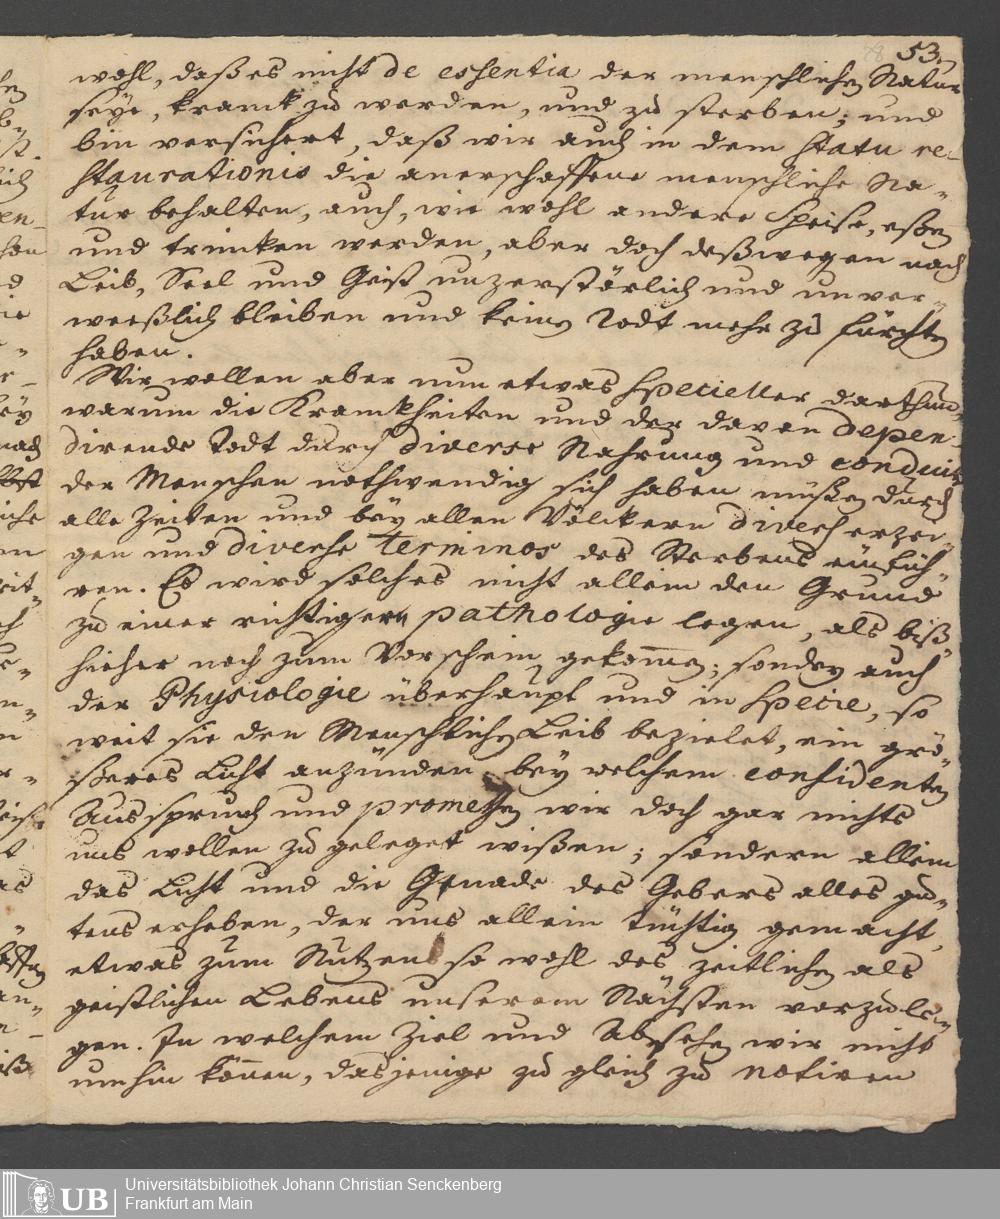 53.
wohl, daß es nicht de essentia der menschlichen Natur
seye, kranck zu werden, und zu sterben; und
bin versichert, daß wir auch in dem statu re-
staurationis die anerschaffene menschliche Na-
tur behalten, auch, wie wohl andere Speise, eßen
und trincken werden, aber doch deßwegen nach
Leib, Seel und Geist unzerstörlich und unver-
weeßlich bleiben und keinen Todt mehr zu förchten
haben.
Wir wollen aber nun etwas specieller darthun,
warum die Kranckheiten und der davon depen-
dirende Todt durch diverse Nahrung und conduite
der Menschen nothwendig sich haben müßen durch
alle Zeiten und bey allen Völckern divers erzei-
gen und diverse terminos des Sterbens einfüh-
ren. Es wird solches nicht allein den Grund
zu einer richtigern pathologie legen, als biß-
hieher noch zum Vorschein gekommen; sondern auch
der Physiologie überhaupt und in specie, so
weit sie den Menschlichen Leib bezielet, ein grö-
ßeres Licht anzünden, bey welchem confidenten
Ausspruch und promessen wir doch gar nichts
uns wollen zu geleget wißen; sondern allein
das Licht und die Gnade des Gebers alles gu-
tens erheben, der uns allein tüchtig gemacht,
etwas zum Nutzen so wohl des zeitlichen als
geistlichen Lebens unserem Nächsten vorzule-
gen. In welchem Ziel und Absehen wir nicht
umhin können, dasjenige zu gleich zu notiren
UB
Universitätsbibliothek Johann Christian Senckenberg
Frankfurt am Main